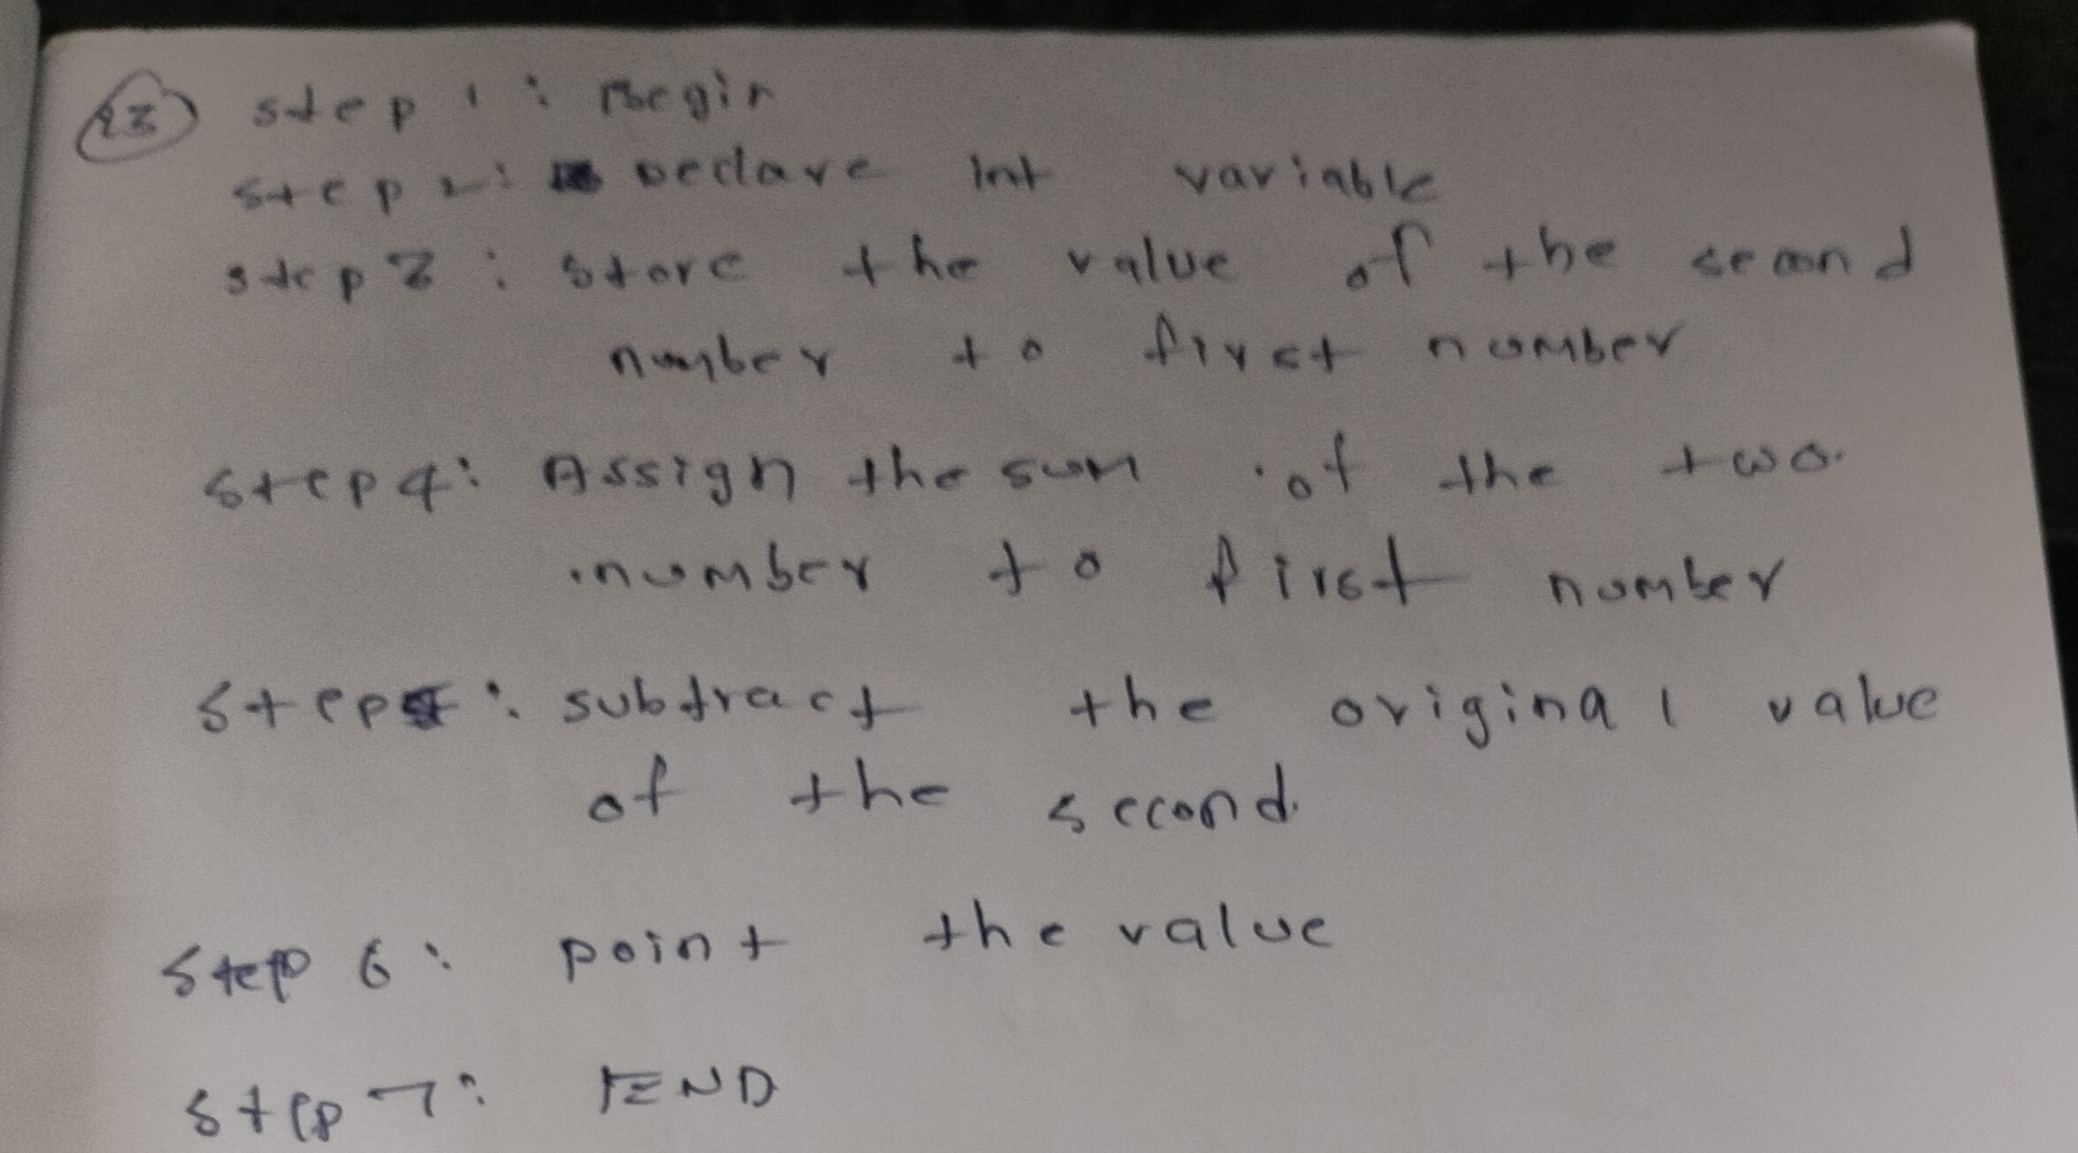 23) step 1 : Begin
step 2 : Declare int variable
step 3 : store the value of the second
number to first number
step 4 : Assign the sum of the two
number to first number
step 5 : subtract the original value
of the second.
Step 6 : point the value
step 7 : END